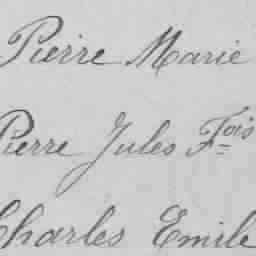 Pierre Marie
Pierre Jules Fois
Charles Emile